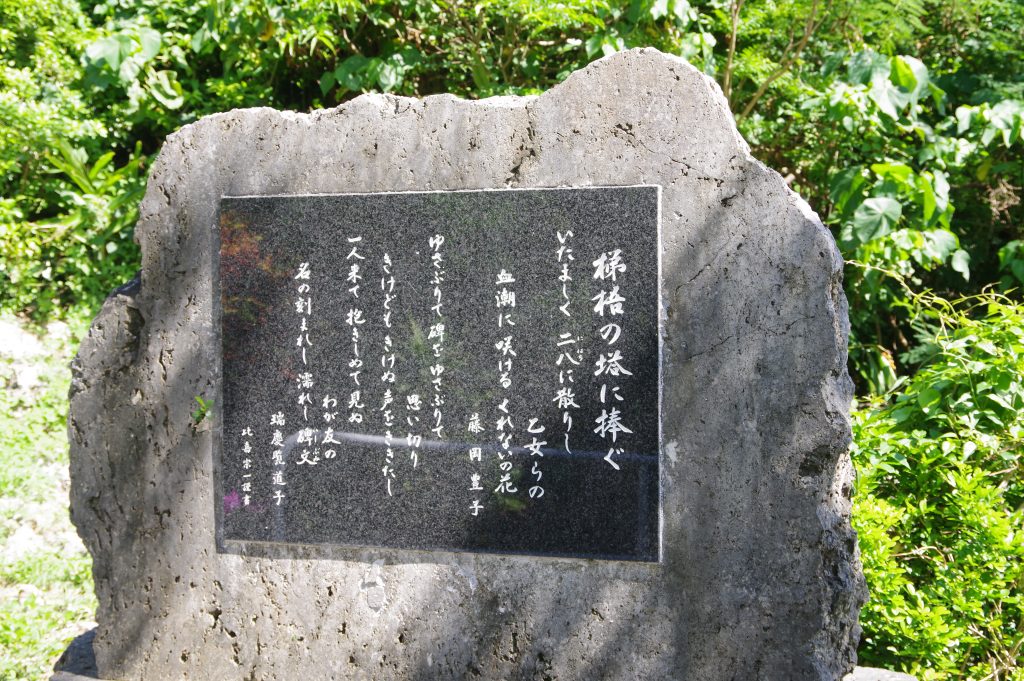 梯梧の塔に捧ぐ
いたましく 二八に散りし
乙女らの
血潮に 咲ける くれないの花
藤岡豊子
ゆさぶりて 碑をゆさぶりて
思い切り
きけどもきけぬ声をききたし
一人来て 抱きしめて見ぬ
わが友の
名の刻まれし 濡れし 碑文
瑞慶覧道子
比嘉宗一謹書